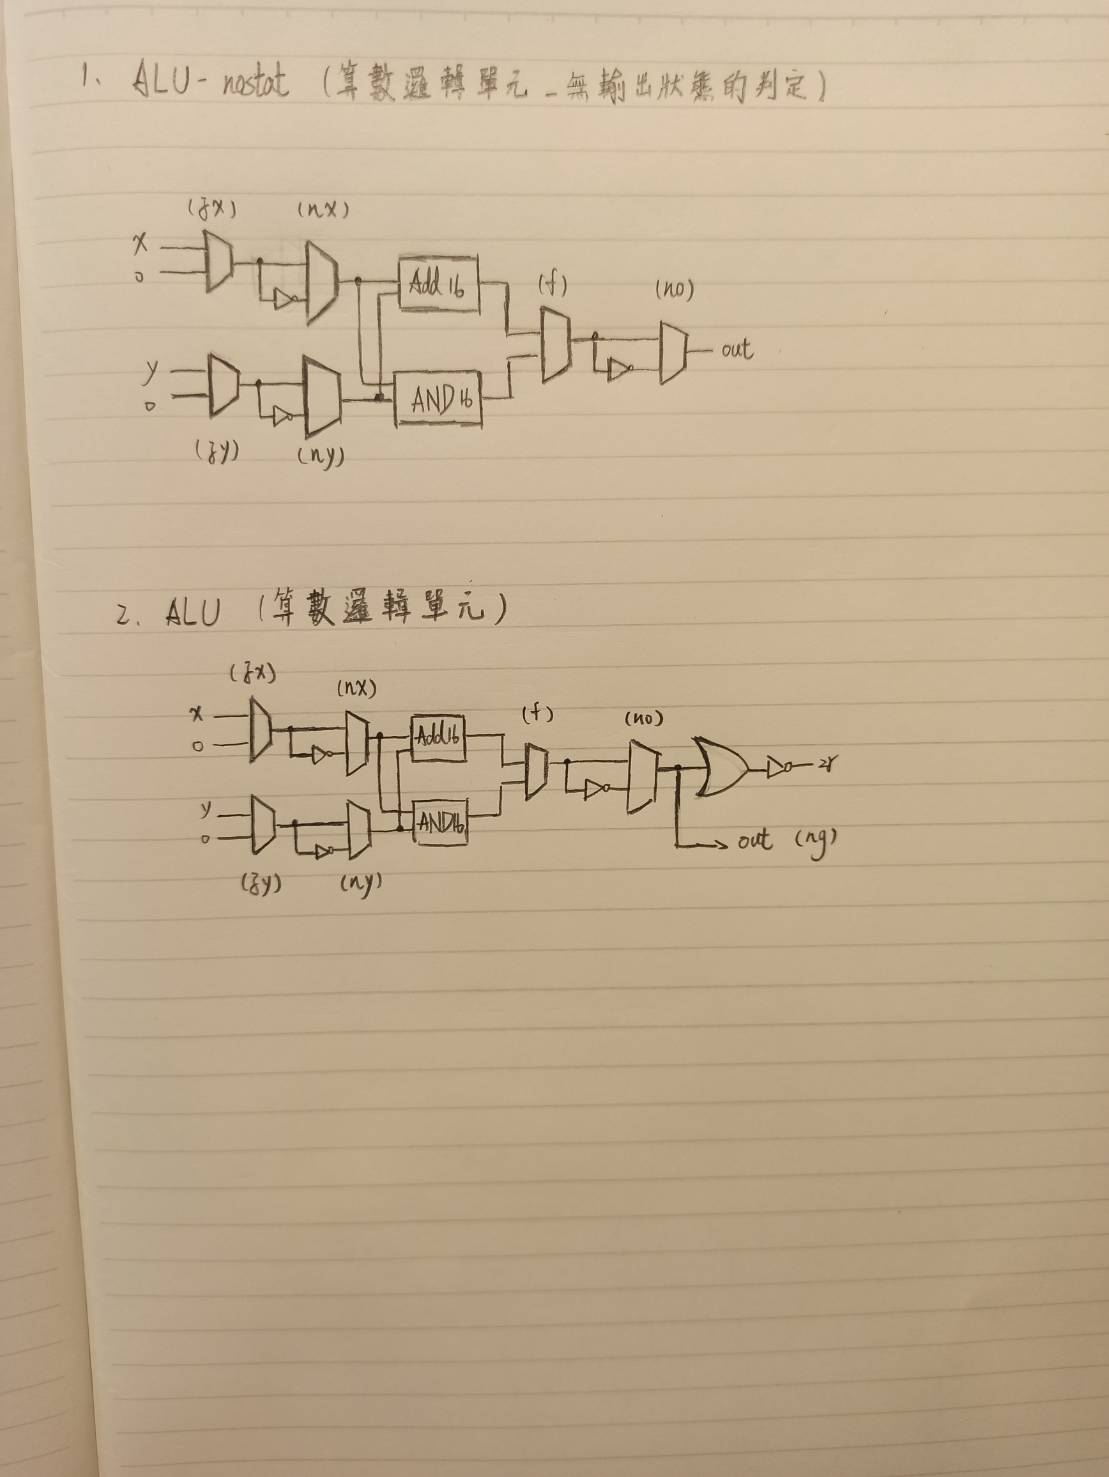 1. ALU-nostat (算數邏輯單元_無輸出狀態的判定)
(zx) (nx)
x
0
Add16
(f)
(no)
out
y
0
AND16
(zy) (ny)
2. ALU (算數邏輯單元)
(zx)
(nx)
x
0
Add16
(f)
(no)
zr
y
0
AND16
out (ng)
(zy) (ny)